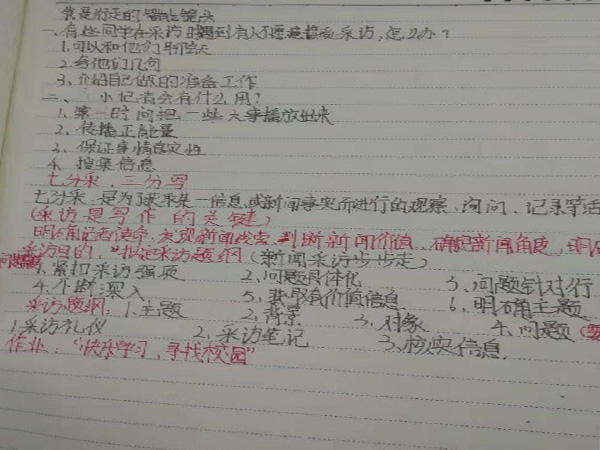 我是行走的智能镜头
一、有些同学在采访时遇到有人不愿意接受采访,怎么办?
1.可以和他们聊聊天
2.夸他们几句
3.介绍自己做的准备工作
二、小记者会有什么用?
1.第一时间把一些大事播放出来
2.传播正能量
3.保证事情真实性
4.搜集信息
七分采,三分写
七分采:是为了获取某一信息或新闻事实而进行的观察、询问、记录等活
(采访是写作的关键)
明确记者使命,发现新闻线索,判断新闻价值,确定新闻角度,明确
采访目的,拟定采访题纲(新闻采访步步走)
1.紧扣采访强项 2.问题具体化 3.问题针对行
4.不断深入 5.获取有价值信息 6.明确主题
采访题纲:1.主题 2.背景 3.对象 4.问题
1.采访礼仪 2.采访笔记 3.核实信息.
作业:"快乐学习,寻找校园"